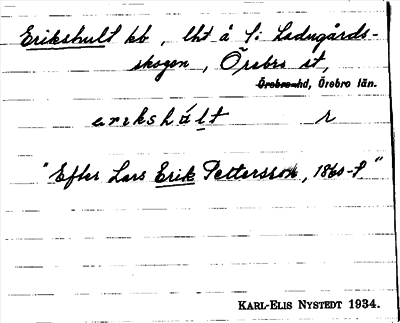 Erikshult kb, lht å f: Ladugårds-
skogen, Örebro st,
Örebro hd, Örebro län.
erekshúlt r
"Efter Lars Erik Pettersson, 1860-t"
KARL-ELIS NYSTEDT 1934.